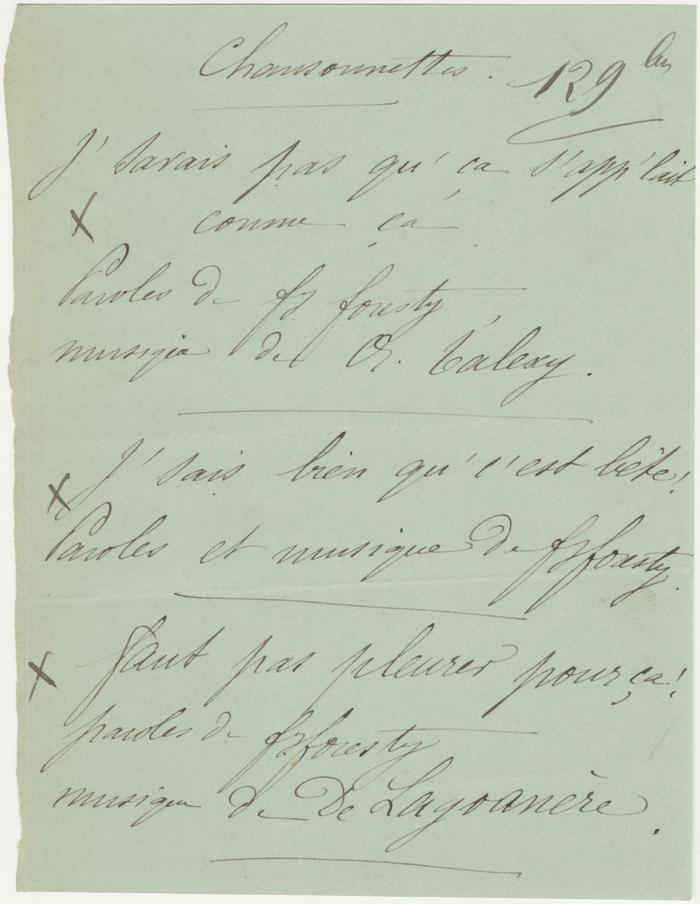 Chansonnettes. 129 bis
J' savais pas qu' ça s'app'lait
X comme ça
Paroles de fz foresty
musique de A. Talexy.
X J' sais bien qu' c'est bête!
Paroles et musique de fz foresty.
X Faut pas pleurer pour ça!
paroles de fz foresty
musique de De Lagoanère.